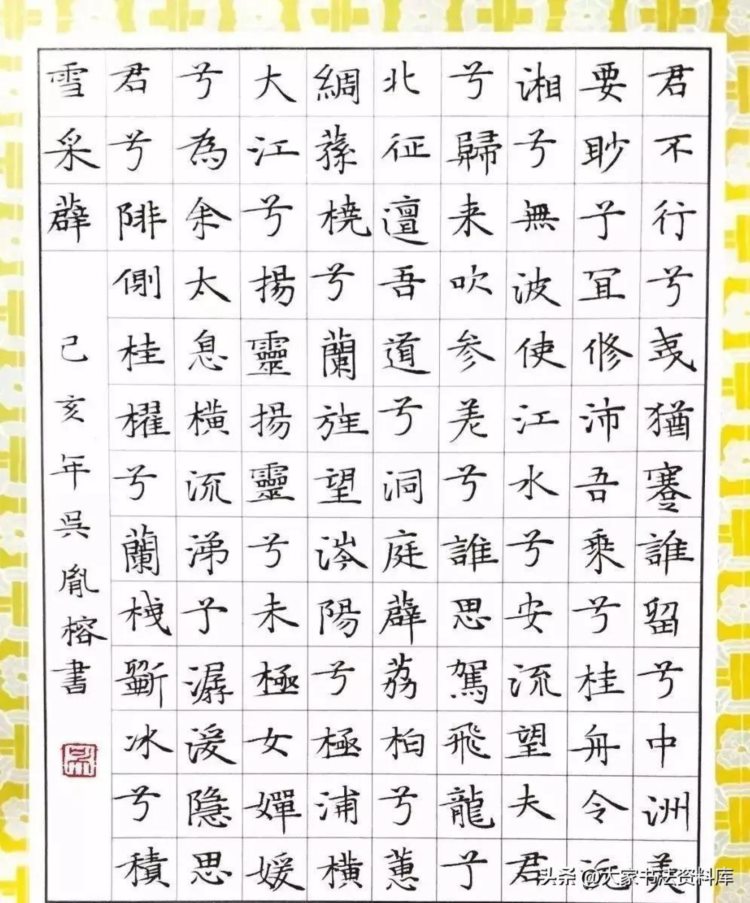 君不行兮夷猶蹇誰留兮中洲美
要眇予冝修沛吾乘兮桂舟令沅
湘兮無波使江水兮安流望夫君
兮歸来吹参差兮誰思駕飛龍兮
北征邅吾道兮洞庭薜荔柏兮蕙
綢蓀橈兮蘭旌望涔陽兮極浦橫
大江兮揚靈揚靈兮未極女嬋媛
兮為余太息橫流涕予潺湲隐思
君兮陫側桂櫂兮蘭栧斲冰兮積
雪采薜
己亥年吳胤榕書
头条 @大家书法资料库